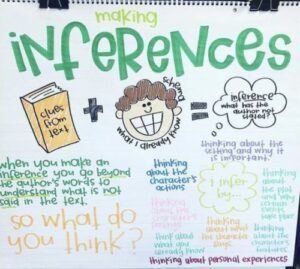 making
inferences
clues
from
text
+
schema
what I already know
=
inference
what has the
author not
stated?
when you make an
inference you go beyond
the author's words to
understand what is not
said in the text.
so what do
you think?
I infer
by...
thinking about the
setting and why it
is important.
thinking
about the
character's
actions
thinking
about the
character's
thinking
about the
plot and
why
think about
what you
already know
thinking
about what
the character
says
thinking
about the
thinking about personal experiences